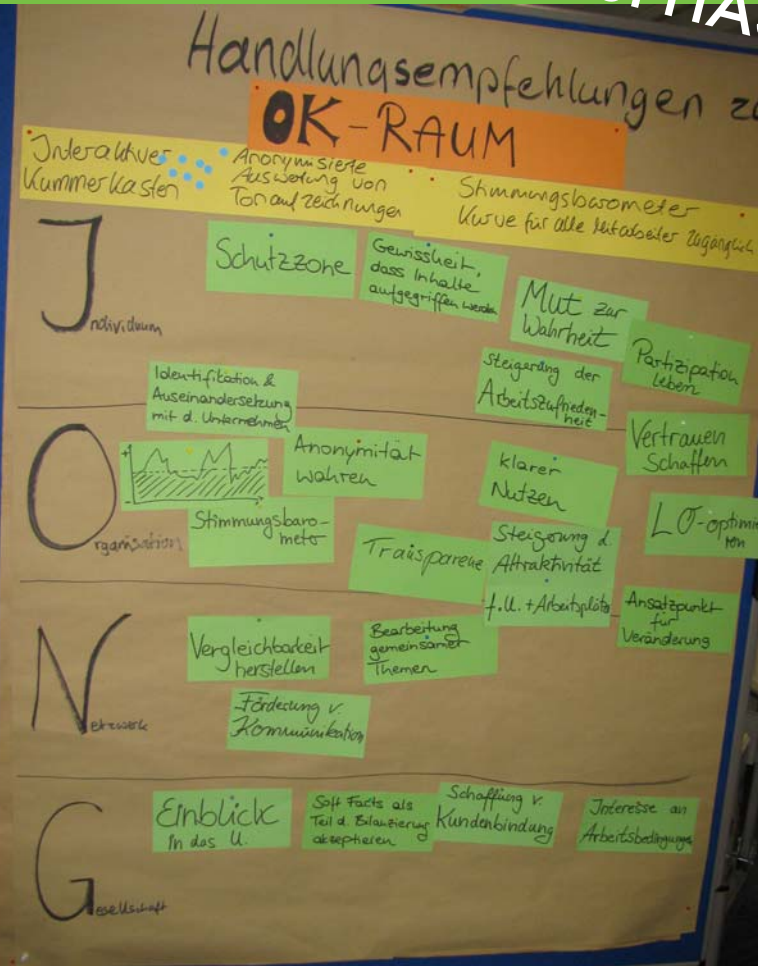 Handlungsempfehlungen
OK-RAUM
Interaktiver
Kummerkasten
Anonymisierte
Auswertung von
Tonaufzeichnungen
Stimmungsbarometer
Kurve für alle Mitarbeiter zugänglich
Individuum
Schutzzone
Gewissheit,
dass Inhalte
aufgegriffen werden
Mut zur
Wahrheit
Partizipation
leben
Steigerung der
Arbeitszufrieden-
heit
Identifikation &
Auseinandersetzung
mit d. Unternehmen
Organisation
+1
-
Anonymität
wahren
klarer
Nutzen
Vertrauen
Schaffen
Stimmungsbaro-
meter
Transparenz
Steigerung d.
Attraktivität
f.U. + Arbeitsplatz
LO-optimie
Netzwerk
Vergleichbarkeit
herstellen
Bearbeitung
gemeinsamer
Themen
Ansatzpunkt
für
Veränderung
Förderung v.
Kommunikation
Gesellschaft
Einblick
in das U.
Soft Facts als
Teil d. Bilanzierung
akzeptieren
Schaffung v.
Kundenbindung
Interesse an
Arbeitsbedingungen